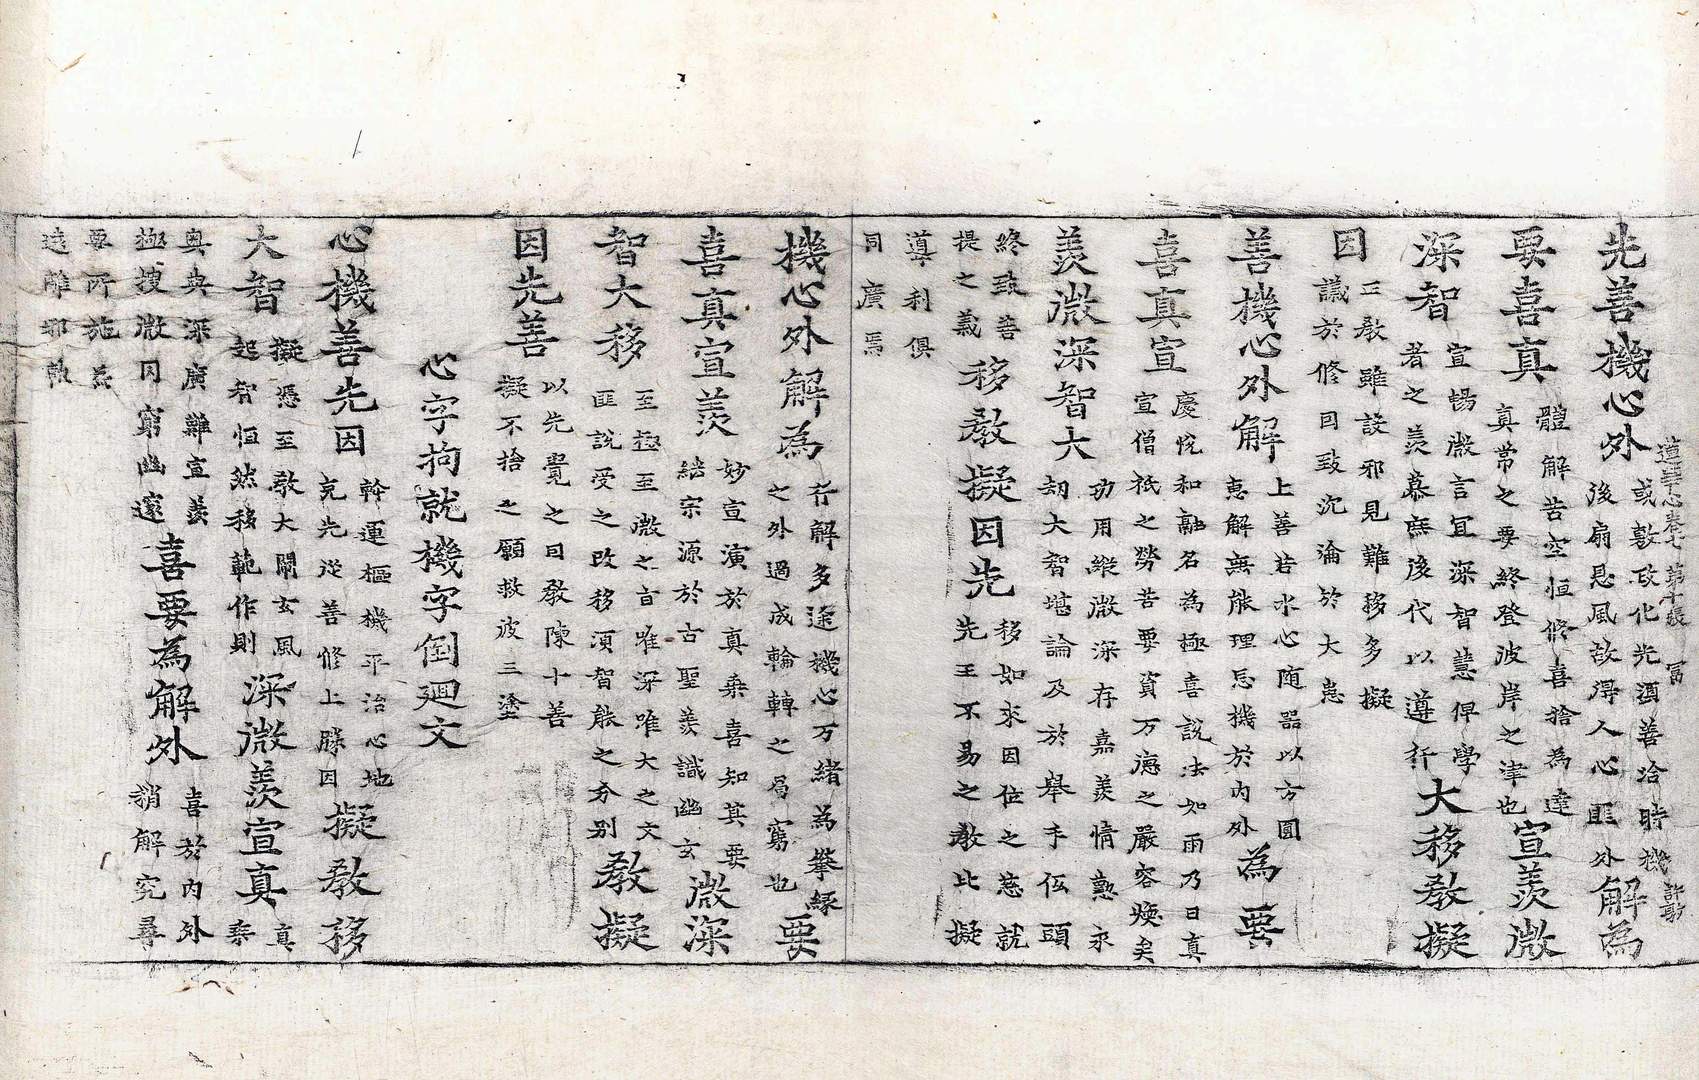 先善機心外或敷政化先須善洽時機
後扇惠風故得人心匪外解為
要喜真體解苦空恒修喜捨為達
真常之要終登波岸之津也宣羨微
深智宣暢微言冝深智慧俾學
者之羨慕庶後代以遵行大移教擬
因三教雖設邪見難移多擬
議於修因致沉淪於大患
善機心外解上善若水心随噐以方圓
惠解無能理忌機於內外為要
喜真宣慶悅和融名為極喜說法如雨乃曰真
宣僧祇之勞苦要資万德之嚴容煥矣
羨微深智大功用縱微深存嘉羨情懃求
刧大智堪論及於舉手低頭
終致善移如來因位之慈說
提之義移教擬因先先王不易之教比擬
導利俱
同廣焉
機心外解為行解多途機心万緒為攀緣
之外過成輪轉之局窮也要
喜真宣羨妙宣演於真乘喜知其要
結宗源於古聖羨識幽玄微深
智大移至極至微之言唯深唯大之文
匪說受之改移湏智能之分別教擬
因先善以先覺之因教陳十善
擬不捨之願救波三塗
心字拘就機字倒廻文
心機善先因斡運樞機平治心地
克先從善修上勝因擬教移
大智擬憑至教大闡玄風
起智恒然移軌作則深微羨宣真真
乘
奧典深廣難宣羨
極搜微因窮幽邃喜要為解外喜於內外
稍解究尋
要所施為
遠離邪執
遵華心卷七 第十張 冨